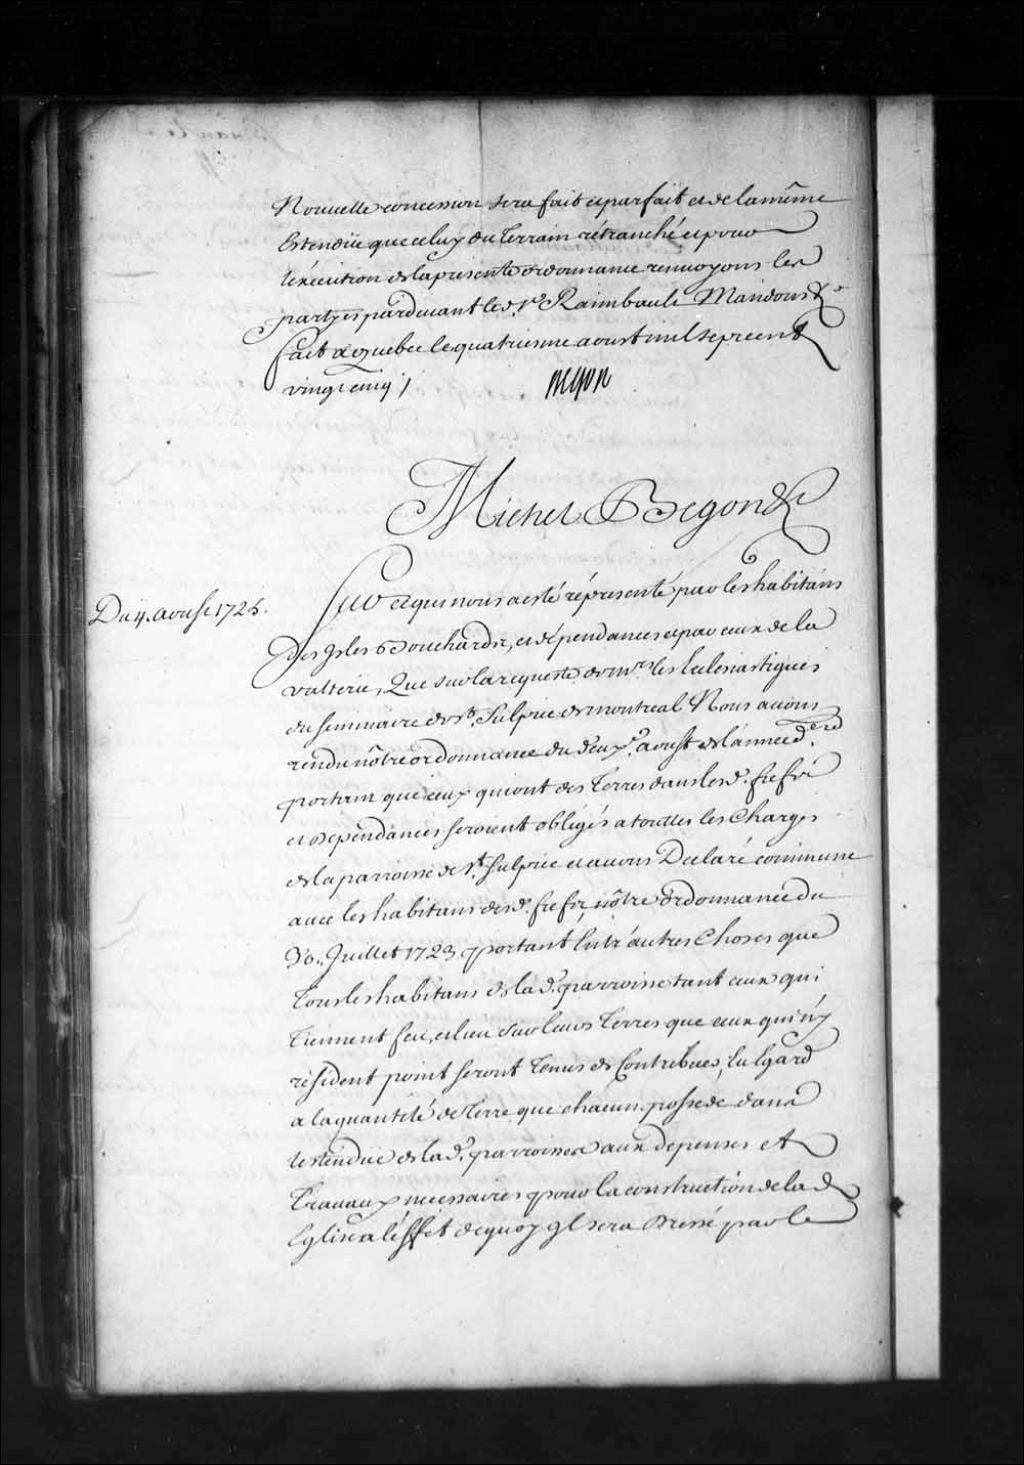 Nouvelle concession sera fait et parfait et de la même
Estendüe que celuy du Terrain rétranché et pour
l'éxécution de la présente ordonnance renvoyons les
partyes pardevant led. Sr. Raimbault Mandons &a
fait a quebec le quatriesme aoust mil sept cent
vingt cinq /
Begon
Michel Begon &a
Du 4. aoust 1725.
Sur ce qui nous a esté réprésenté par les habitans
des Isles Bouchards, et dépendances et par ceux de la
valterie, Que sur la requeste de Mrs. les Eclesiastiques
du seminaire de St. Sulpice de montreal Nous avons
rendu nôtre ordonnance du deuxe. aoust de l'année dere.
portant que ceux qui ont des Terres dans lesd. fiefs
et dependances seroient obligés a toutes les Charges
de la parroisse de St. Sulpice et avons Declaré commune
avec les habitans desd. fiefs nôtre ordonnance du
30. Juillet 1723, portant Entr'autres Choses que
Tous les habitans de la d. parroisse tant ceux qui
Tiennent feu, et lieu sur leurs Terres que ceux qui n'y
résident point seront Tenus de Contribuer, Eu Egard
a la quantité de Terre que chacun possede dans
lestendüe de la d. parroisse aux depenses et
Travaux necessaires pour la construction de la d.
Eglise a l'éffet de quoy Il sera dressé par le